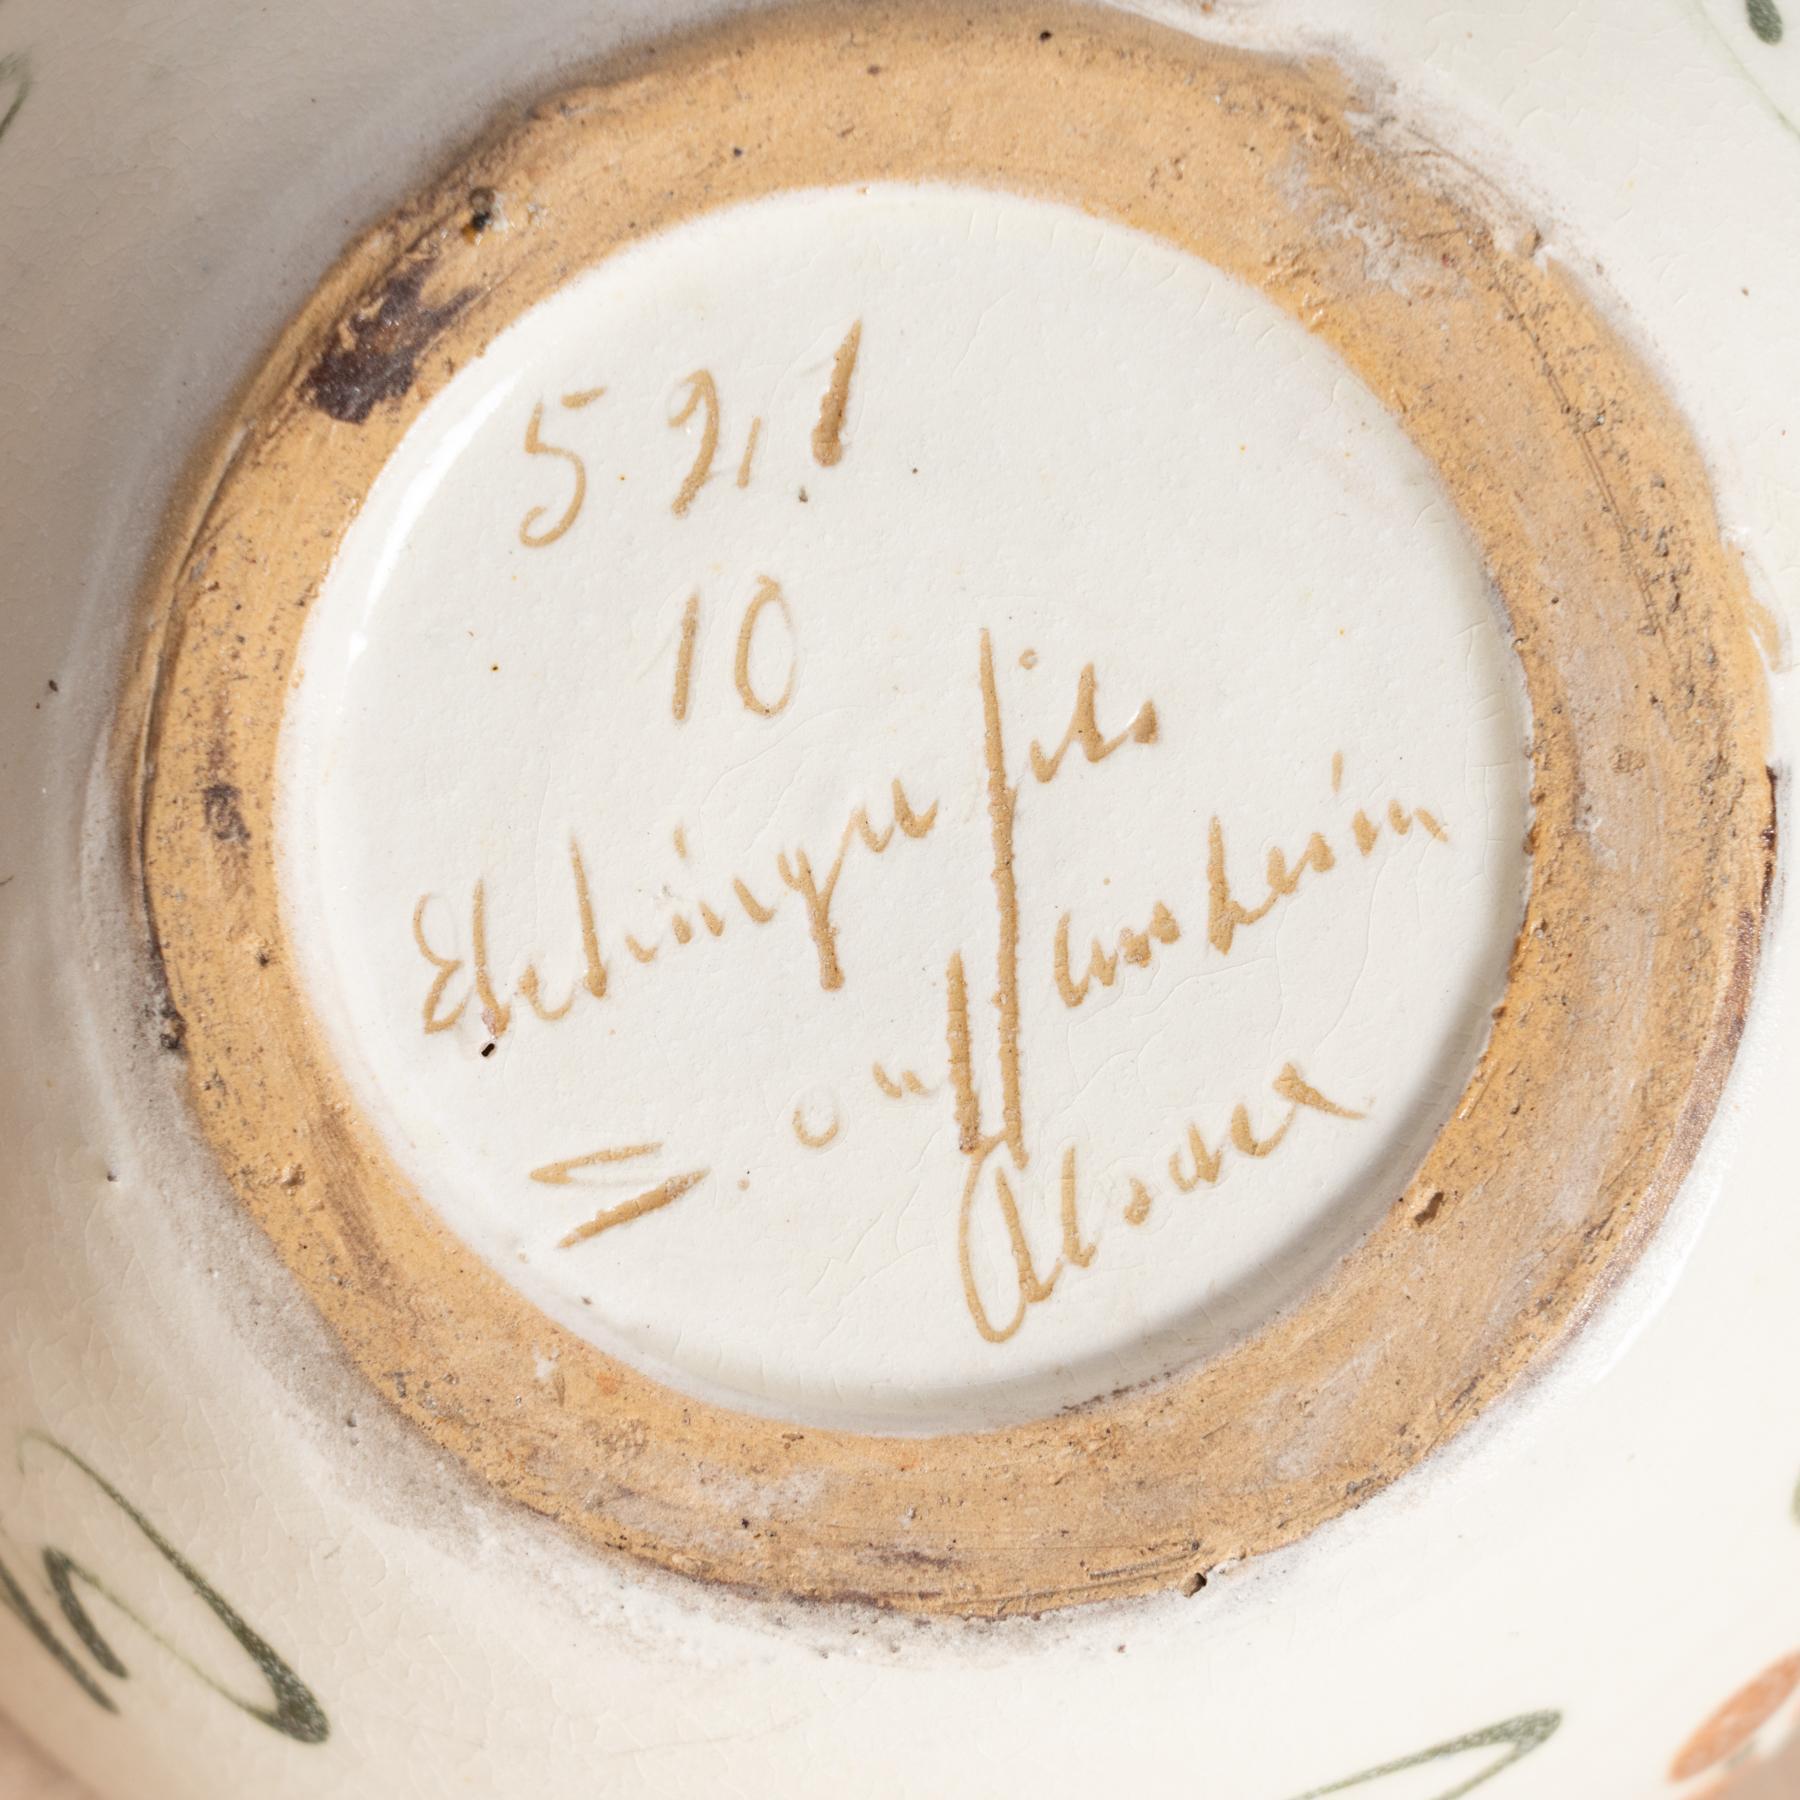 521
10
Elchinger fils
Soufflenheim
Alsace